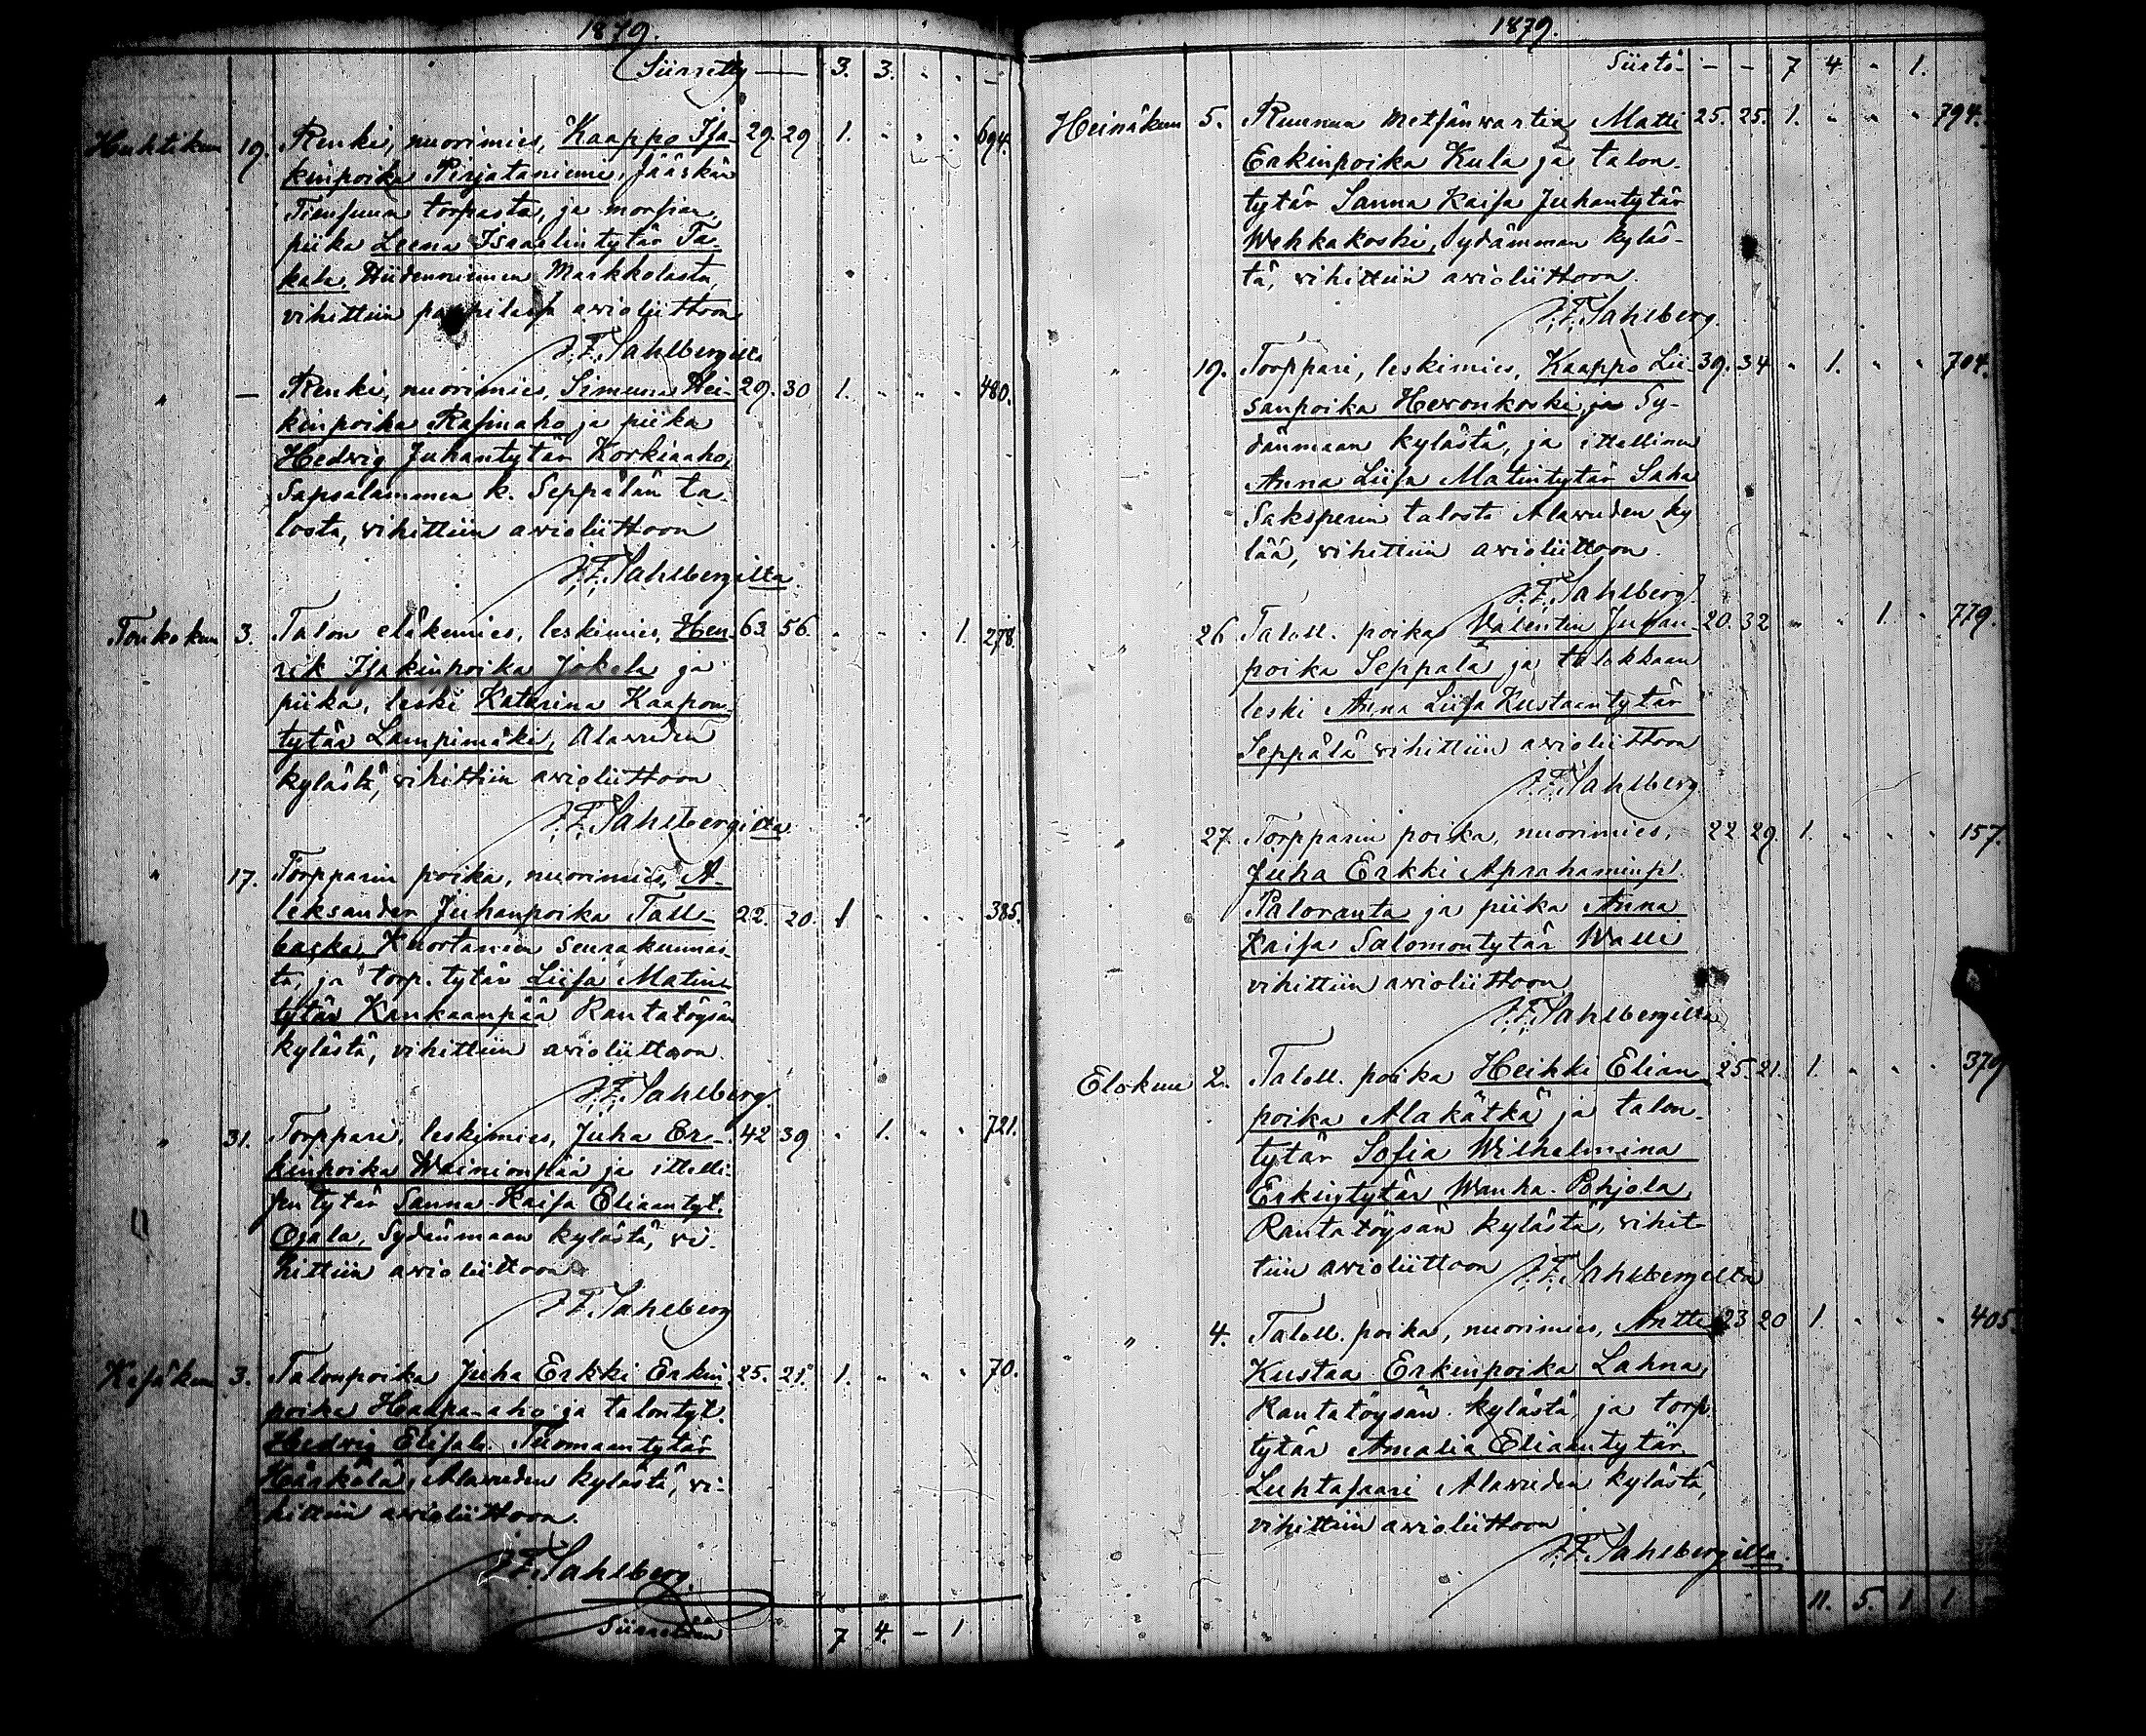 1879.
Siirretty — 3. 3. " " —
Huhtikuu 19. Renki, nuorimies, Kaappo Isa- 29. 29 1. " " " 694.
kinpoika Pirjetaniemi, Jääskän
Tiensuun torpasta, ja morsian,
piika Leena Israelintytär Ta-
kala, Hiidenniemen Markkolasta,
vihittiin pappilassa avioliittoon
J. F. Sahlbergilta
" — Renki, nuorimies, Simuna Hei- 29. 30 1. " " " 480.
kinpoika Rasinaho ja piika
Hedvig Juhantytär Korkiaaho,
Sapsalammen k. Seppälän ta-
losta, vihittiin avioliittoon
J. F. Sahlbergilta
Toukokuu 3. Talon eläkemies, leskimies, Hen- 63. 56. " " " 1. 278.
rik Isakinpoika Jokela ja
piika, leski Katarina Kaapon-
tytär Lampimäki, Alavuden
kylästä, vihittiin avioliittoon
J. F. Sahlbergilta
" 17. Torpparin poika, nuorimies, A-
leksander Juhanpoika Tall- 22. 20. 1 " " " 385.
backa, Kuortaneen seurakunnas-
ta, ja torp. tytär Liisa Matin-
tytär Kankaanpää Rantatöysän
kylästä, vihittiin avioliittoon.
J. F. Sahlberg.
" 31. Torppari, leskimies, Juha Er- 42 39 " 1. " " 721.
kinpoika Wainionpää ja itelli-
sen tytär Sanna Kaisa Eliaantyt.
Ojala, Sydänmaan kylästä, vi-
hittiin avioliittoon
J. F. Sahlberg
Kesäkuu 3. Talonpoika Juha Erkki Erkin- 25. 21. 1. " " " 70.
poika Haapa-aho ja talontyt.
Hedvig Elisab. Tuomaantytär
Härkölä, Alavuden kylästä, vi-
hittiin avioliittoon.
J. F. Sahlberg
Siirretään 7 4. — 1
1879.
Siirto — — 7 4 " 1.
Heinäkuu 5. Ruunun metsänvartia Matti 25. 25. 1. " " " 794.
Erkinpoika Kula ja talon-
tytär Sanna Kaisa Juhantytär
Wehkakoski, Sydänmaan kyläs-
tä, vihittiin avioliittoon.
J. F. Sahlberg.
" 19. Torppari, leskimies, Kaappo Lii- 39. 34 " 1. " " 704.
sanpoika Hevonkoski ja Sy-
dänmaan kylästä, ja itellinen
Anna Liisa Matintytär Saha
Saksperin talosta Alavuden ky
lää, vihittiin avioliittoon.
J. F. Sahlberg.
" 26 Taloll. poika Valentin Juhan- 20. 32 " " 1. " 779.
poika Seppälä ja talokkaan
leski Anna Liisa Kustaantytär
Seppälä vihittiin avioliittoon
J. F. Sahlberg.
" 27. Torpparin poika, nuorimies, 22 29 1. " " " 157.
Juha Erkki Aprahaminp.
Paloranta ja piika Anna
Kaisa Salomontytär Walli
vihittiin avioliittoon
J. F. Sahlbergilta
Elokuu 2. Taloll. poika Heikki Elian 25. 21. 1. " " " 379
poika Alakätkä ja talon-
tytär Sofia Wilhelmina
Erkintytär Wanha-Pohjola,
Rantatöysän kylästä, vihit-
tiin avioliittoon J. F. Sahlbergilta
" 4. Taloll. poika, nuorimies, Antti 23 20 1. " " " 405.
Kustaa Erkinpoika Lahna,
Rantatöysän kylästä, ja torp.
tytär Amalia Eliaantytär
Luhtasaari Alavuden kylästä,
vihittiin avioliittoon
J. F. Sahlbergilta.
11. 5. 1 1